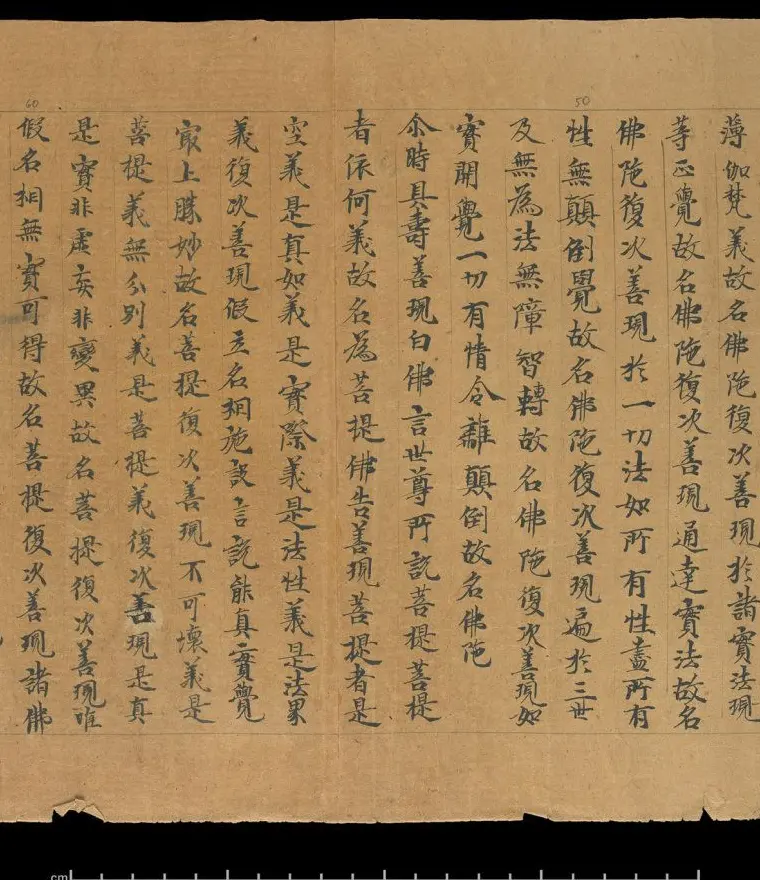 薄伽梵義故名佛陁復次善現於諸實法現
等正覺故名佛陁復次善現通達實法故名
佛陁復次善現於一切法如所有性盡所有
50
性無顛倒覺故名佛陁復次善現遍於三世
及無為法無障智轉故名佛陁復次善現如
實開覺一切有情令離顛倒故名佛陁
尒時具壽善現白佛言世尊所說菩提菩提
者依何義故名為菩提佛告善現菩提者是
空義是真如義是實際義是法性義是法界
義復次善現假立名相施設言說能真實覺
冣上勝妙故名菩提復次善現不可壞義是
菩提義無分別義是菩提義復次善現是真
是實非虛妄非變異故名菩提復次善現唯
60
假名相無實可得故名菩提復次善現諸佛
cm